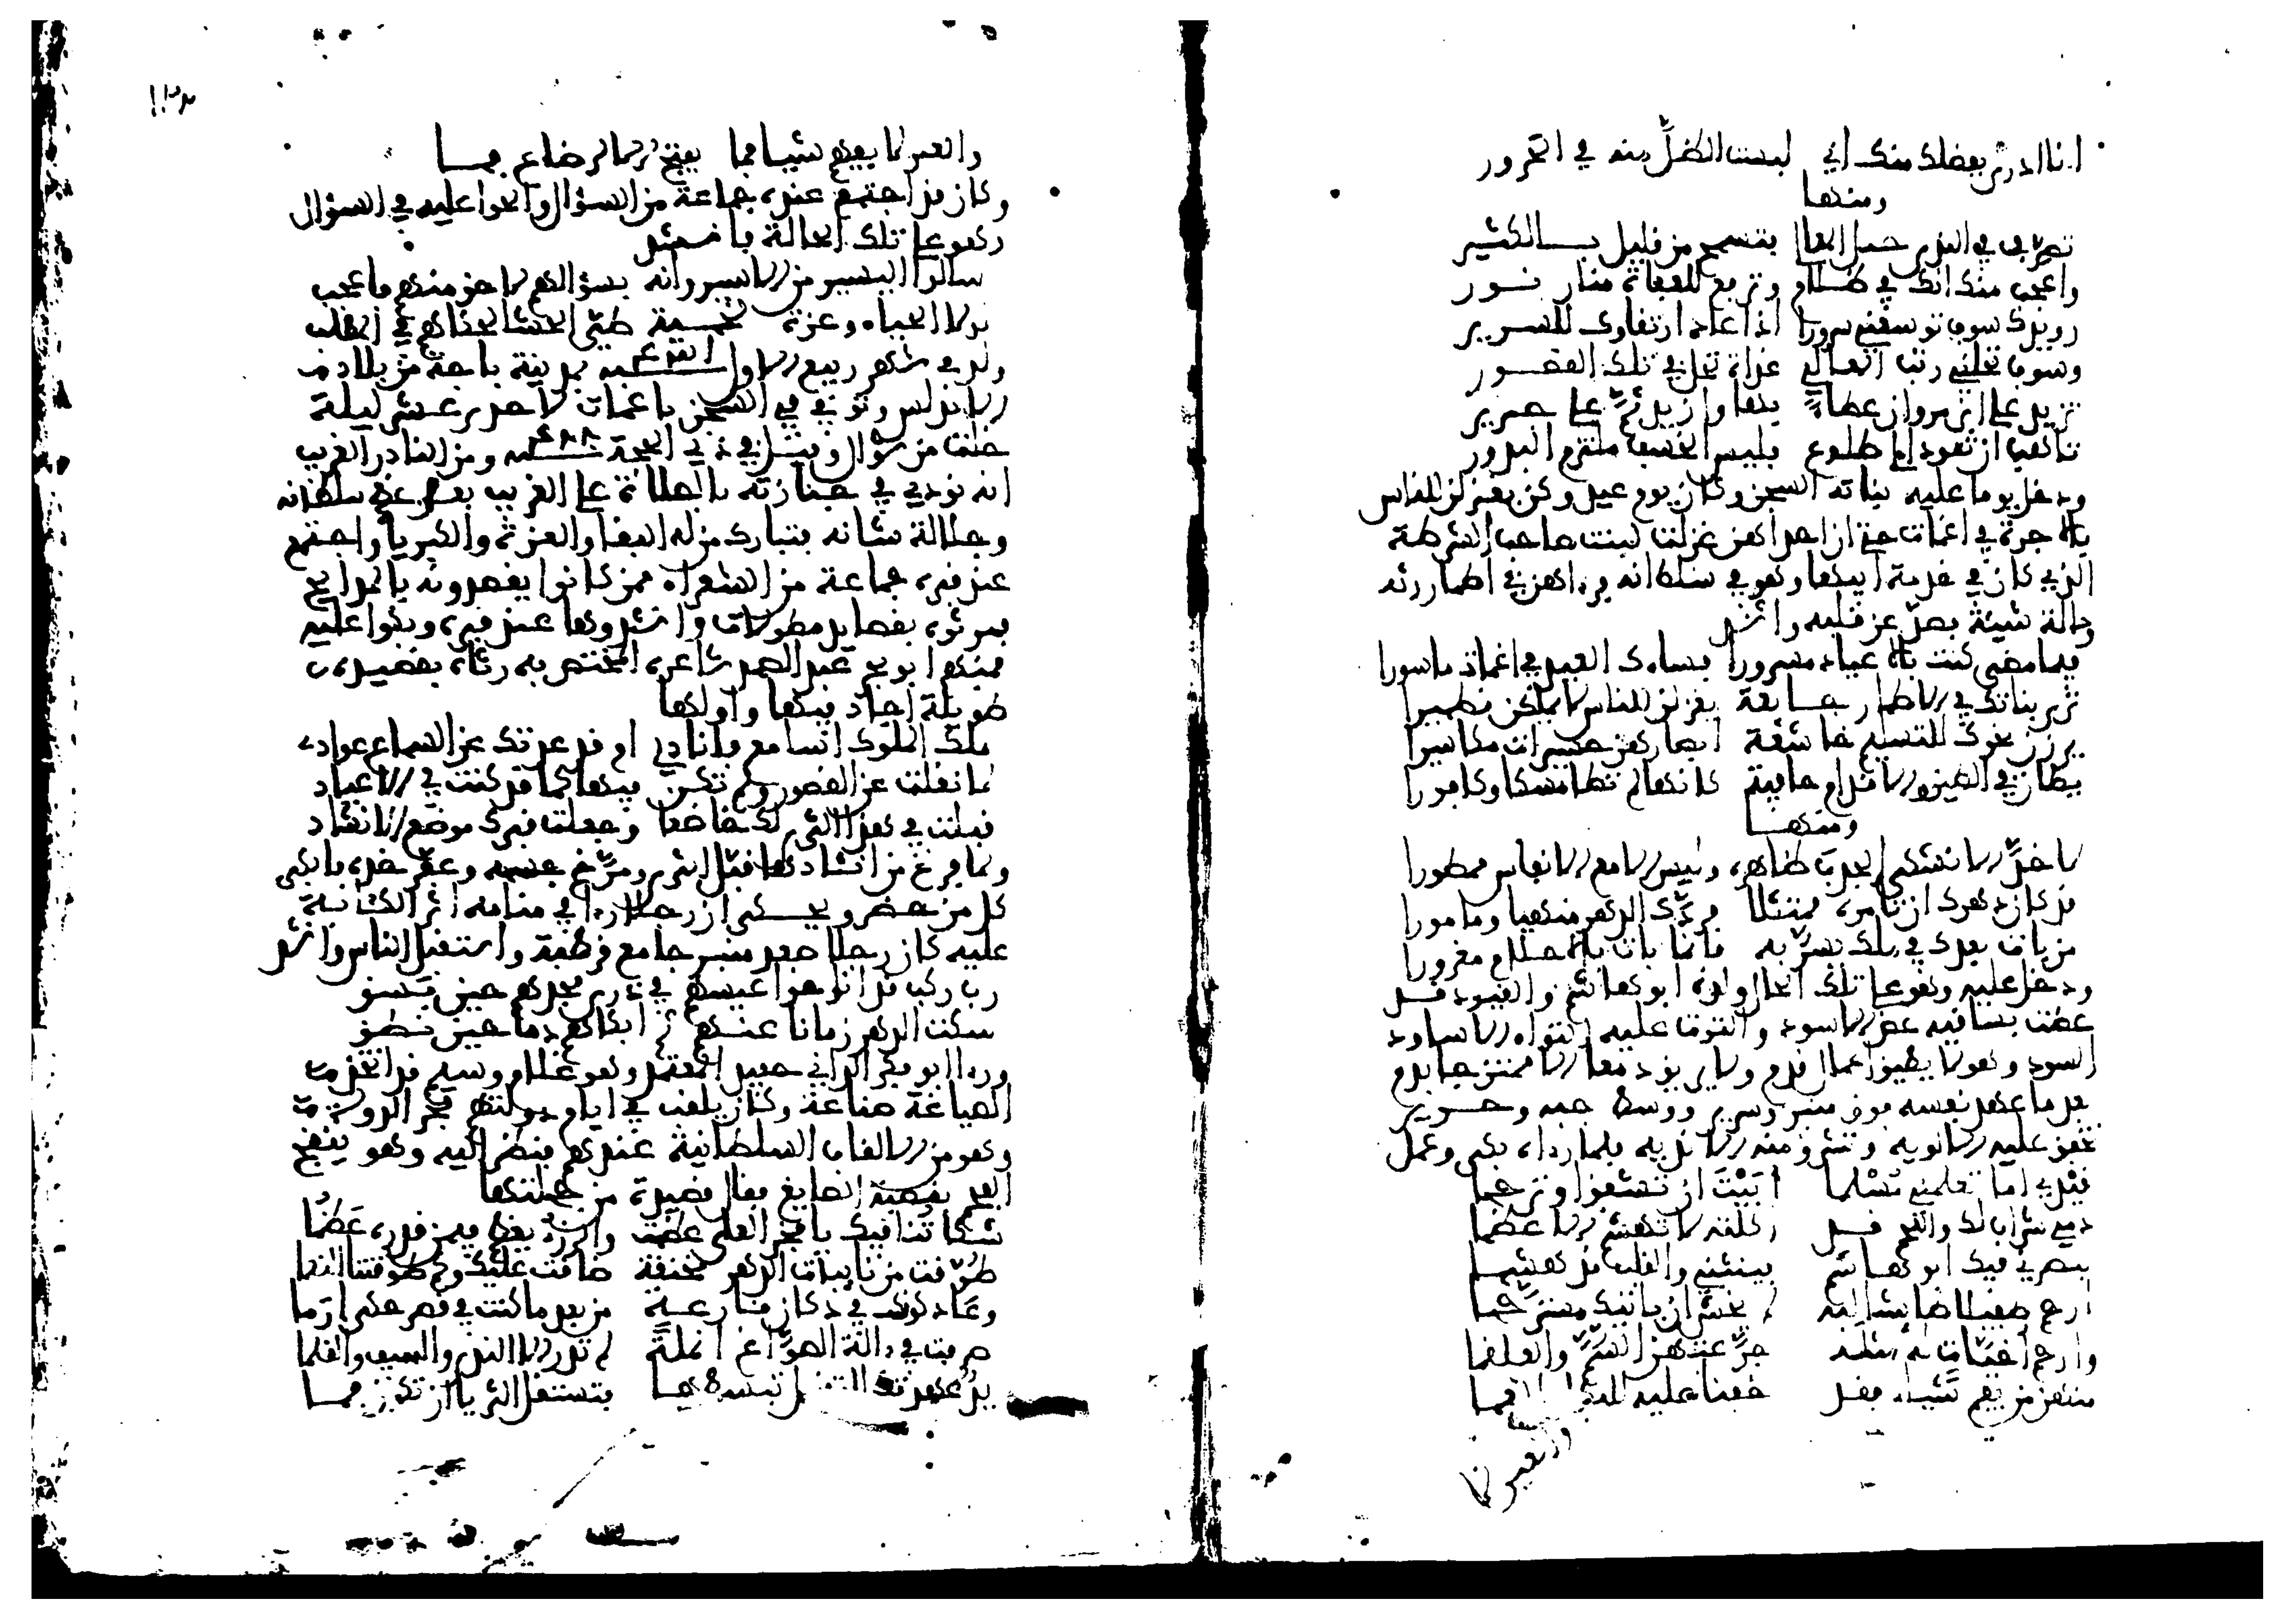 انا ادرى بفضلك منك اني لبست الظل منه في الحرور
ومنها
تصرف في الندى حيل المعالي فتسمح من قليل بالكثير
واعجب منك انك في ظلام وترفع للعفاة منار نور
رويدك سوف توسعني سرورا اذا عاد ارتقاؤك للسرير
وسوف تحلني رتب المعالي غداة تحل في تلك القصور
تزيد على ابن مروان عطاء بها وازيد ثم على جرير
تاهب ان تعود الى طلوع فليس الخسف ملتزم البدور
ودخل يوما عليه بناته السجن وكان يوم عيد وكن يغزلن للناس
بالاجرة في اغمات حتى ان احداهن غزلت لبيت صاحب الشرطة
الذي كان في خدمة ابيها وهو في سلطانه فرءاهن في اطمار رثة
وحالة سيئة فصدعن قلبه وانشد
فيما مضى كنت بالاعياد مسرورا فساءك العيد في اغمات ماسورا
ترى بناتك في الاطمار جائعة يغزلن للناس لا يملكن قطميرا
برزن نحوك للتسليم خاشعة ابصارهن حسيرات مكاسيرا
يطأن في الطين والاقدام حافية كانها لم تطا مسكا وكافورا
ومنها
لا خد الا تشكى الجدب ظاهره وليس الا مع الانفاس ممطورا
قد كان دهرك ان تامره ممتثلا فردك الدهر منهيا ومامورا
من بات بعدك في ملك يسر به فانما بات بالاحلام مغرورا
ودخل عليه وهو على تلك الحال ولده ابو هاشم والقيود قد
عضت بساقيه عض الاسود والتوت عليه التواء الاساود
السود وهو لا يطيق اعمال قدم ولا يريق دمعا الا ممتزجا بدم
بعد ما عهد نفسه فوق منبر وسرير ووسط جنة وحرير
تخفق عليه الالوية وتشرق منه الاندية فلما رءاه بكى وعمل
قيدي اما تعلمني مسلما ابيت ان تشفق او ترحما
دمي شراب لك واللحم قد اكلته لا تهشم الاعظما
يبصرني فيك ابو هاشم فينثني والقلب قد هشما
ارحم طفيلا طايشا لبه لم يخش ان ياتيك مسترحما
وارحم اخيات له مثله جرعتهن السم والعلقما
منهن من يفهم شيئا فقد خفنا عليه للبكاء العما
والغير لا
والغير لا يفهم شيئا فما يفتح الا لرضاع فما
وكان قد اجتمع عنده جماعة من السؤال والحوا عليه في السؤال
وهو على تلك الحالة فانشد
سالوا اليسير من الاسير وانه بسؤالهم لاحق منهم فاعجب
لولا الحياء وعزة لخمية طي الحشا لحكاهم في المطلب
ولد في شهر ربيع الاول سنة بمدينة باجة من بلاد
الاندلس وتوفي في السجن باغمات لاحدى عشر ليلة
خلت من شوال وقيل في ذي الحجة سنة ومن النادر الغريب
انه نودي في جنازته بالصلاة على الغريب بعد عظم سلطانه
وجلالة شانه فتبارك من له البقا والعزة والكبرياء واجتمع
عند قبره جماعة من الشعراء ممن كانوا يقصدونه بالمدايح
فرثوه بقصايد مطولات وانشدوها عند قبره وبكوا عليه
فمنهم ابو بحر عبد الصمد شاعره المختص به رثاه بقصيدة
طويلة اجاد فيها واولها
ملك الملوك اسامع فانادي ام قد عدتك عن السماع عوادي
لما نقلت عن القصور ولم تكن فيها كما قد كنت في الاعياد
قبلت في هذا الثرى لك خاضعا وجعلت قبرك موضع الانشاد
ولما فرغ من انشادها قبل الثرى ومرغ جسمه وعفر خده فابكى
كل من حضر ويحكى ان رجلا رءا في منامه اثر الكائنة
عليه كان رجلا صعد منبر جامع قرطبة واستقبل الناس وانشد
رب ركب قد اناخوا عيسهم في ذرى مجدهم حين بسق
سكت الدهر زمانا عنهم ثم ابكاهم دما حين نطق
ورءا ابو بكر الداني حفيد المعتمد وهو غلام وسيم قد اتخذ
الصياغة صناعة وكان يلقب في ايام دولتهم فخر الدولة
وهو من الالقاب السلطانية عندهم فنظر اليه وهو ينفخ
الفحم بقصبة الصايغ فقال قصيدة من جملتها
شكاتنا فيك يا فخر العلى عظمت والرزء يعظم فيمن قدره عظما
طوقت من نايبات الدهر مخنقة ضاقت عليك وكم طوقتنا النعما
وعاد كونك في دكان قارعة من بعد ما كنت في قصر حكى ارما
صرفت في ءالة الصواغ انملة لم تدر الا الندى والسيف والقلما
يد عهدتك للتقبيل تبسطها فتستقل الثريا ان تكون فما